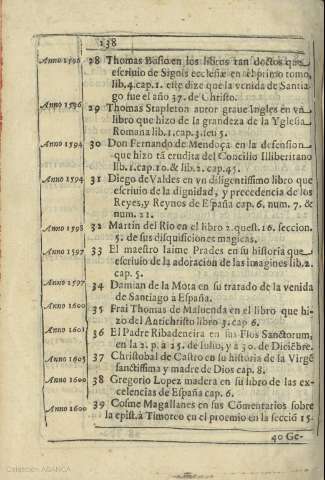 138
Anno 1596 28 Thomas Bosio en los libros tan doctos que
escriuio de Signis ecclesiæ en el primo tomo,
lib. 4. cap. 1. ete dize que la venida de Santia
go fue el año 37. de Christo.
Anno 1596 29 Thomas Stapleton autor graue Ingles en vn
libro que hizo de la grandeza de la Yglesia
Romana lib. 1. cap. 3. seu 5.
Anno 1594 30 Don Fernando de Mendoça en la defension
que hizo tã erudita del Concilio Illiberitano
lib. 1. cap. 10. & lib. 2. cap. 45.
Anno 1594 31 Diego de Valdes en vn diligentissimo libro que
escriuio de la dignidad, y precedencia de los
Reyes, y Reynos de España cap. 6. num. 7. &
num. 21.
Anno 1598 32 Martin del Rio en el libro 2. quest. 16. seccion.
5. de sus disquisiciones magicas.
Anno 1597 33 El maestro Iaime Prades en su historia que
escriuio de la adoracion de las imagines lib. 2.
cap. 5.
Anno 1597 34 Damian de la Mota en su tratado de la venida
de Santiago a España.
Anno 1600 35 Frai Thomas de Maluenda en el libro que hi-
zo del Antichristo libro 3. cap 6.
Anno 1601 36 El Padre Ribadeneira en sus Flos Sanctorum,
en la 2. p. a 25. de Iulio, y a 30. de Diciẽbre.
Anno 1605 37 Christobal de Castro en su historia de la Virgẽ
sanctissima y madre de Dios cap. 8.
Anno 1600 38 Gregorio Lopez madera en su libro de las ex-
celencias de España cap. 6.
Anno 1600 39 Cosme Magallanes en sus Cõmentarios sobre
la epist. à Timoteo en el proemio en la secciõ 15.
40 Ge-
Colección AGANCA